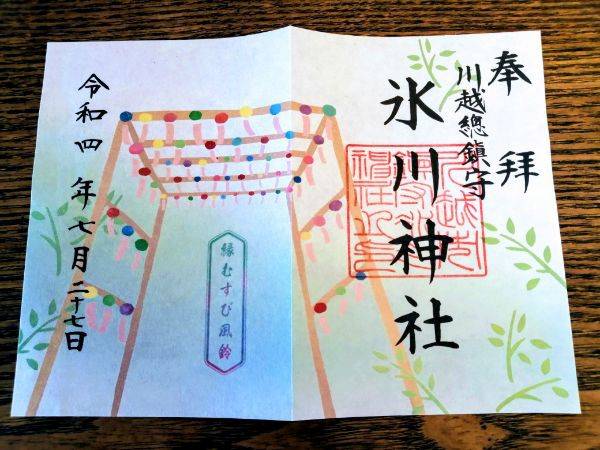 奉拝
川越總鎮守
氷川神社
縁むすび風鈴
令和四年七月二十七日